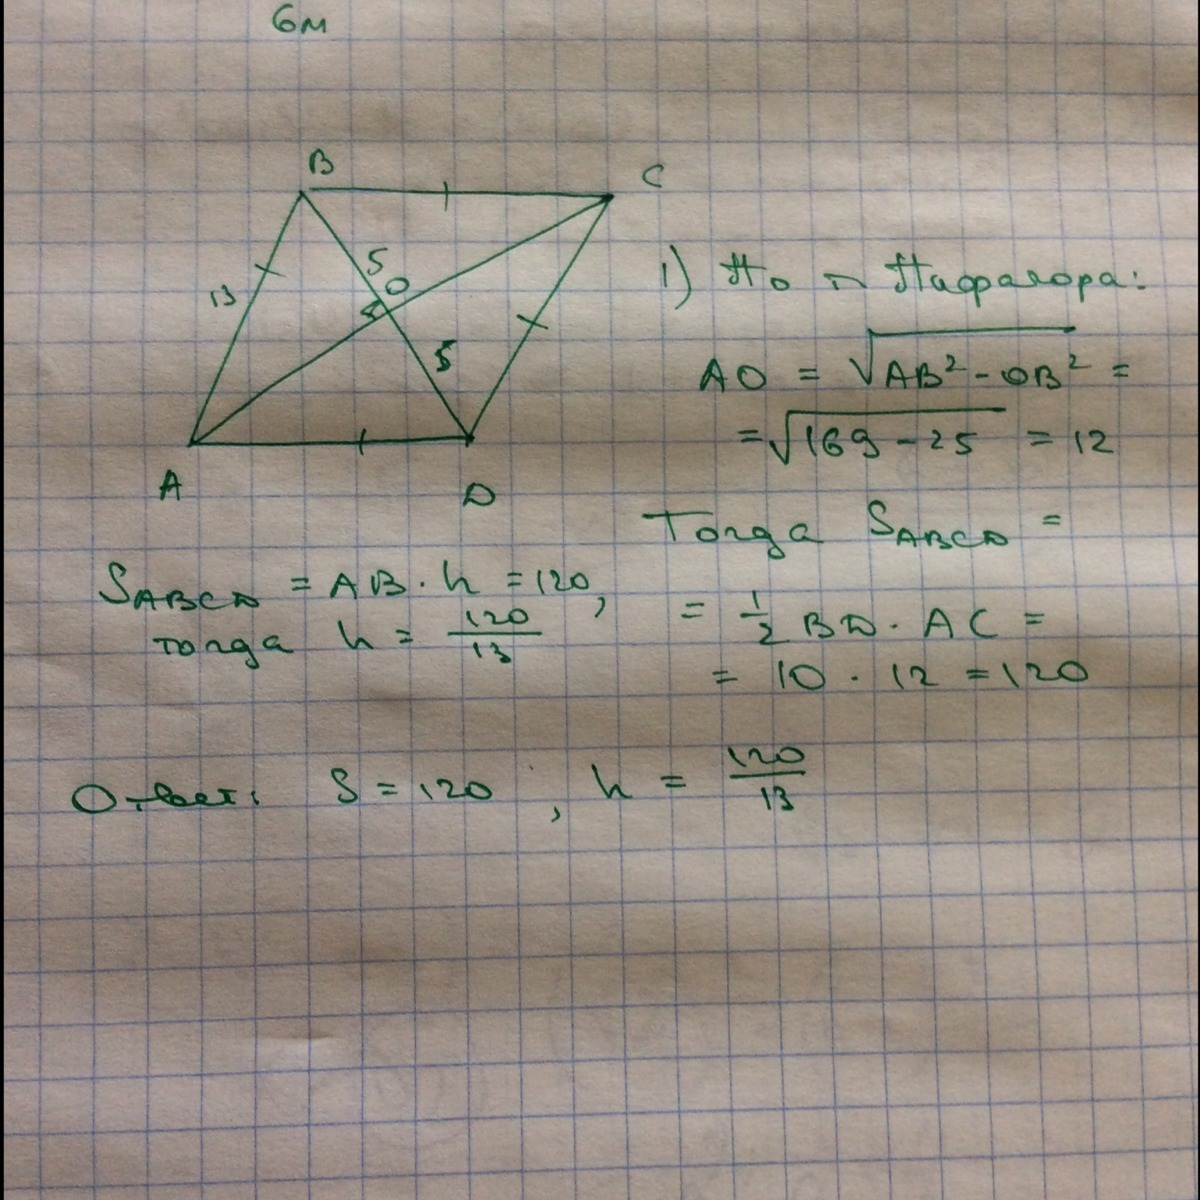 6м
B
C
13
5
O
5
A
D
1) По т Пифагора:
AO = √AB² - OB² =
= √169 - 25 = 12
Тогда SABCD =
= 1/2 BD · AC =
= 10 · 12 = 120
SABCD = AB · h = 120,
тогда h = 120/13
Ответ: S = 120 ; h = 120/13